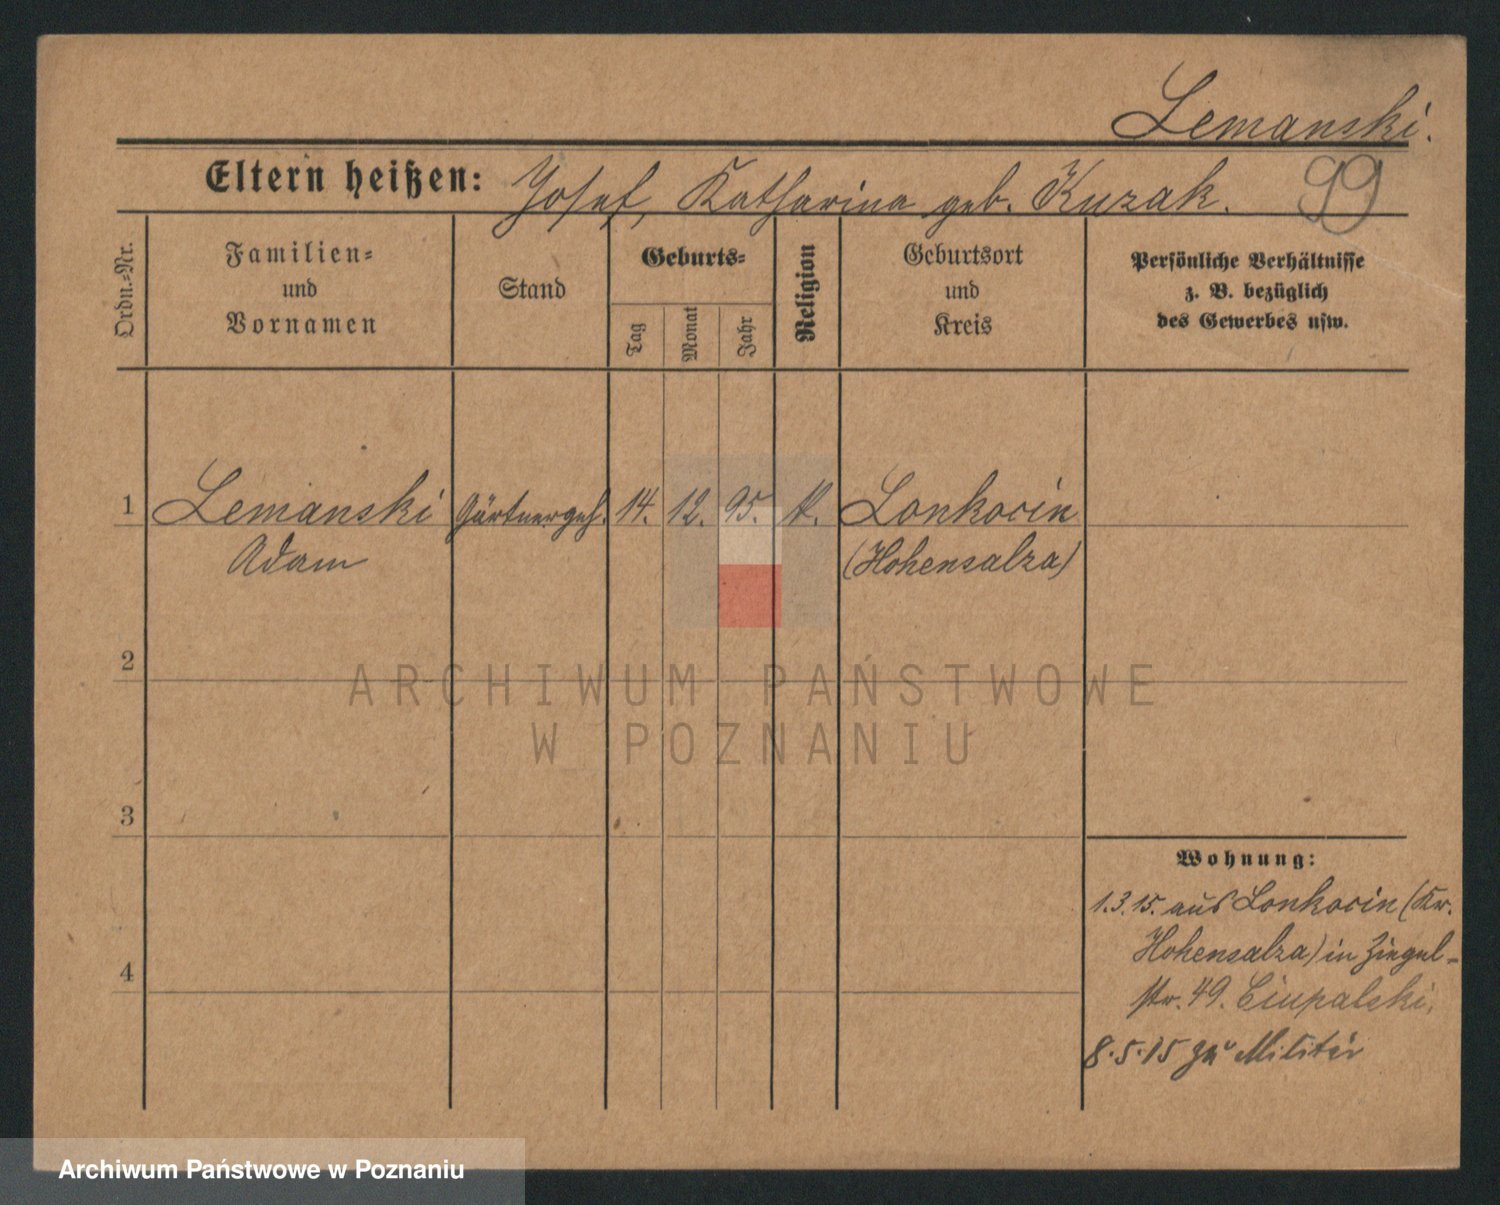 Lemanski.
Eltern heißen: Josef, Katharina geb. Kuzak.
99
Ordn.-Nr.
Familien-
und
Vornamen
Stand
Geburts-
Tag
Monat
Jahr
Religion
Geburtsort
und
Kreis
Persönliche Verhältnisse
z. B. bezüglich
des Gewerbes usw.
1 Lemanski Gärtnergeh. 14. 12. 95. k. Lonkocin
Adam (Hohensalza)
2
ARCHIWUM PAŃSTWOWE
W POZNANIU
3
Wohnung:
1.3.15. aus Lonkocin (Kr.
Hohensalza) in Ziegel-
str. 49. Ciupalski.
4
8.5.15 zu Militär
Archiwum Państwowe w Poznaniu